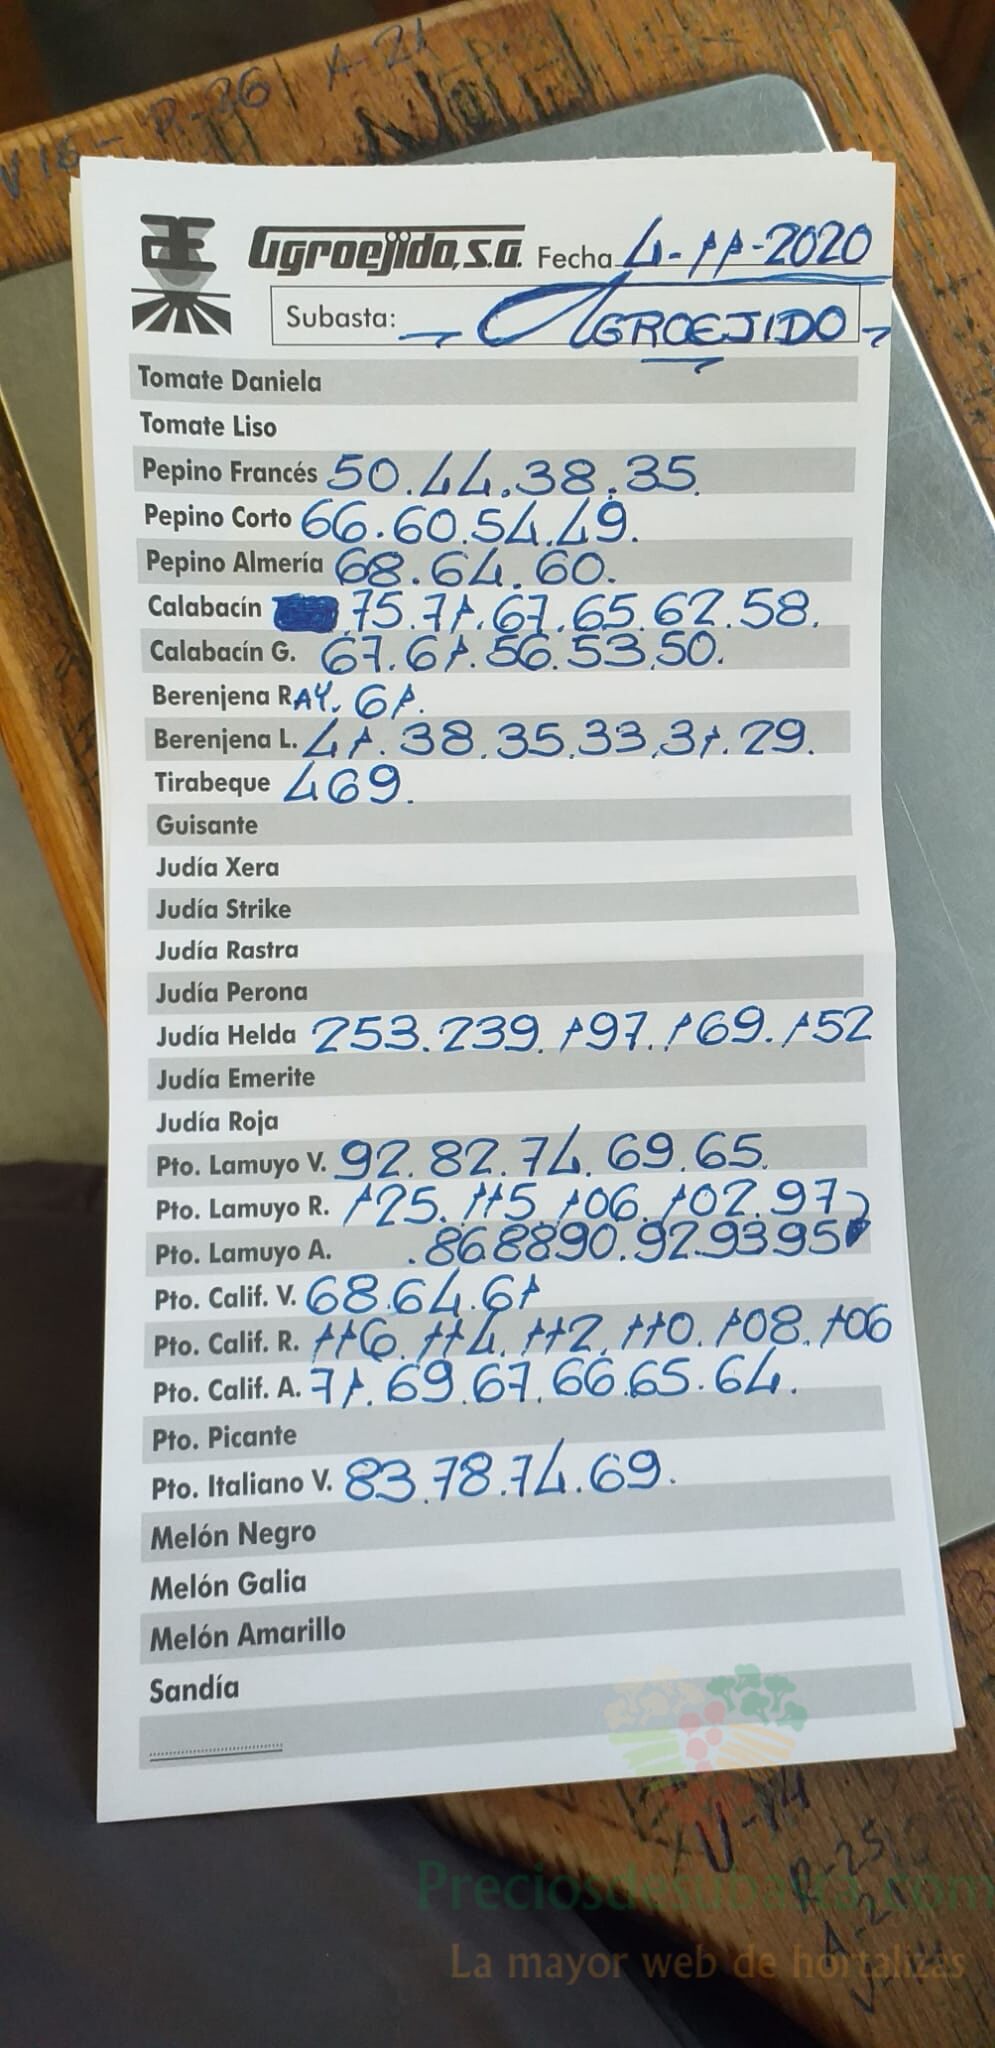 V16- R-26 A-21
Agroejido, s.a. Fecha 4-11-2020
Subasta: AGROEJIDO
Tomate Daniela
Tomate Liso
Pepino Francés 50.44.38.35.
Pepino Corto 66.60.54.49.
Pepino Almería 68.64.60.
Calabacín 75.71.67.65.62.58.
Calabacín G. 67.61.56.53.50.
Berenjena RAY. 61.
Berenjena L. 41.38.35.33.31.29.
Tirabeque 469.
Guisante
Judía Xera
Judía Strike
Judía Rastra
Judía Perona
Judía Helda 253.239.197.169.152
Judía Emerite
Judía Roja
Pto. Lamuyo V. 92.82.74.69.65.
Pto. Lamuyo R. 125.115.106.102.97
Pto. Lamuyo A. .868890.929395
Pto. Calif. V. 68.64.61
Pto. Calif. R. 116.114.112.110.108.106
Pto. Calif. A. 71.69.67.66.65.64.
Pto. Picante
Pto. Italiano V. 83.78.74.69.
Melón Negro
Melón Galia
Melón Amarillo
Sandía
V-14
R-25
Preciosdesubasta.com
A-21
La mayor web de hortalizas